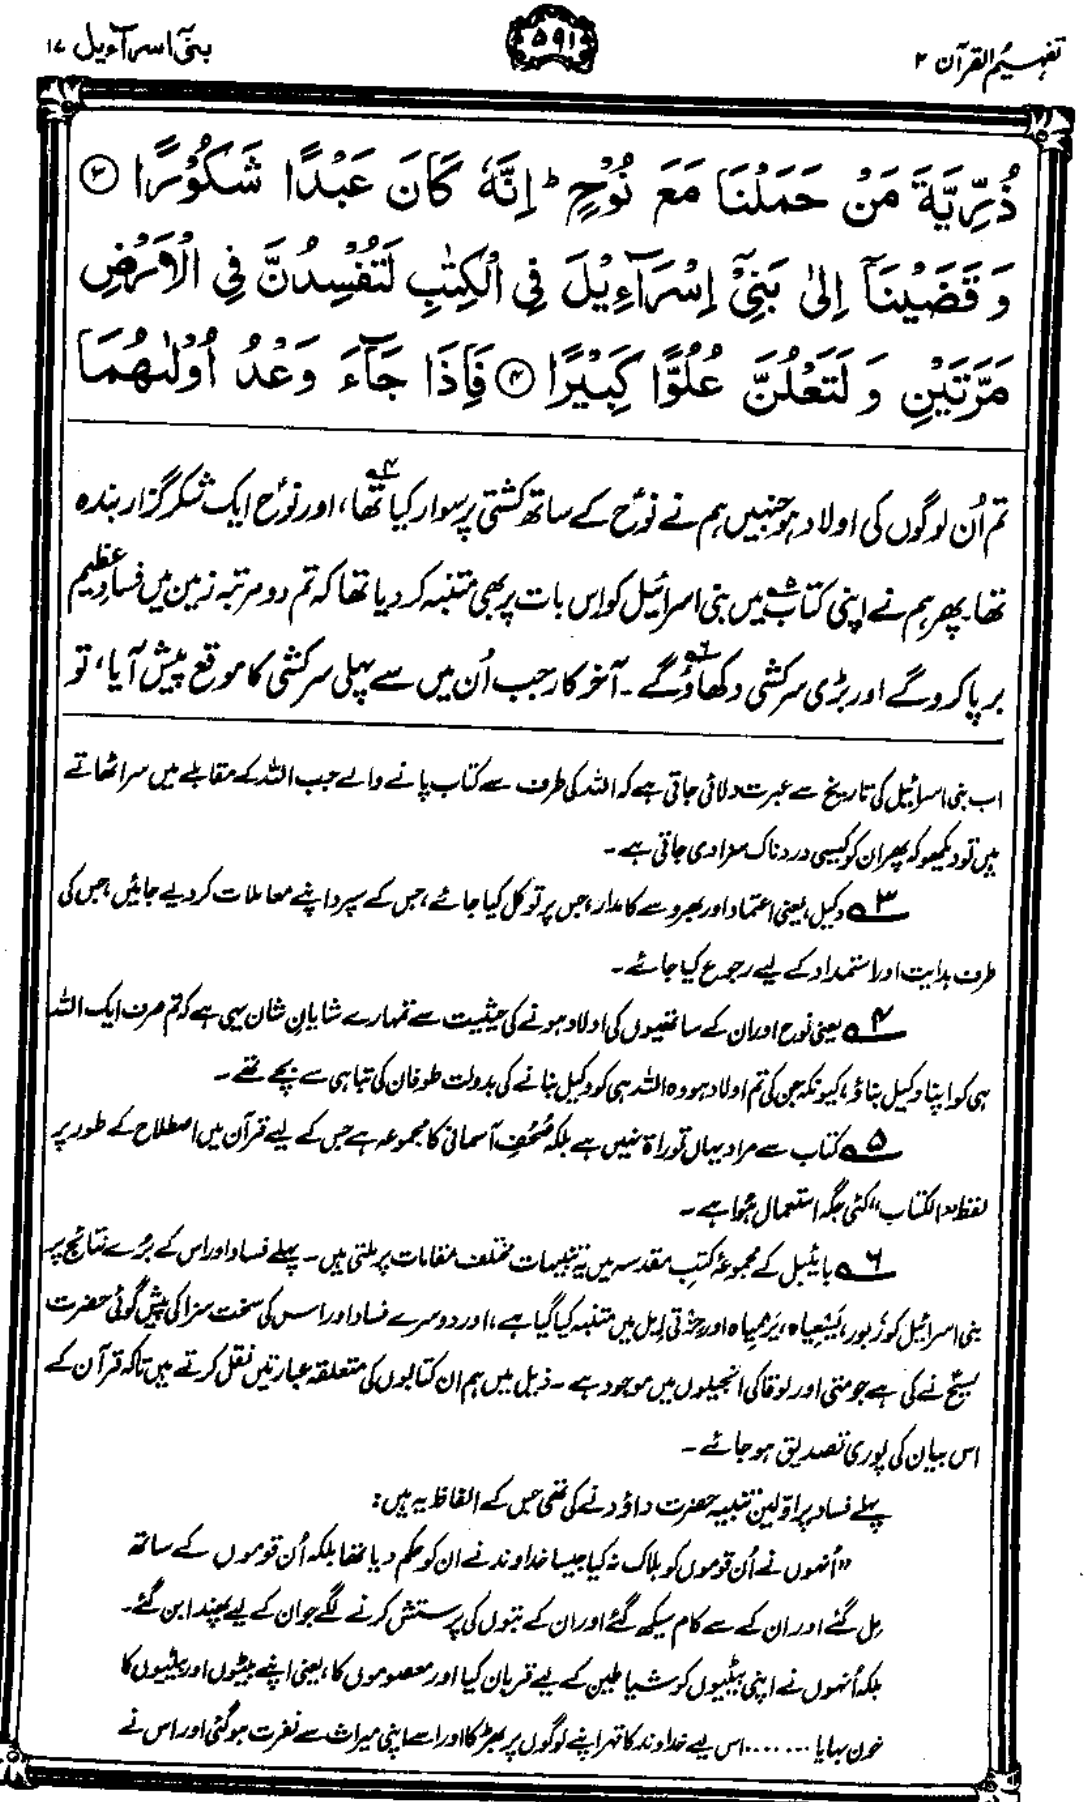 تفہیم القرآن ۲
۵۹۱
بنی اسرآءیل ۱۷
ذُرِّيَّةَ مَنْ حَمَلْنَا مَعَ نُوْحٍ ؕ اِنَّهٗ كَانَ عَبْدًا شَكُوْرًا ۝۳
وَ قَضَيْنَاۤ اِلٰى بَنِيْۤ اِسْرَآءِيْلَ فِي الْكِتٰبِ لَتُفْسِدُنَّ فِي الْاَرْضِ
مَرَّتَيْنِ وَ لَتَعْلُنَّ عُلُوًّا كَبِيْرًا ۝۴ فَاِذَا جَآءَ وَعْدُ اُوْلٰىهُمَا
تم اُن لوگوں کی اولاد ہو جنہیں ہم نے نوحؑ کے ساتھ کشتی پر سوار کیا تھا۴ـہ، اور نوحؑ ایک شکر گزار بندہ
تھا۔ پھر ہم نے اپنی کتاب۵ـہ میں بنی اسرائیل کو اِس بات پر بھی متنبہ کر دیا تھا کہ تم دو مرتبہ زمین میں فسادِ عظیم
برپا کرو گے اور بڑی سرکشی دکھاؤ گے۶ـہ۔ آخر کار جب اُن میں سے پہلی سرکشی کا موقع پیش آیا، تو
اب بنی اسرائیل کی تاریخ سے عبرت دلائی جاتی ہے کہ اللہ کی طرف سے کتاب پانے والے جب اللہ کے مقابلے میں سر اٹھاتے
ہیں تو دیکھو کہ پھر ان کو کیسی دردناک سزا دی جاتی ہے۔
۳ـہ وکیل، یعنی اعتماد اور بھروسے کا مدار، جس پر توکل کیا جائے، جس کے سپرد اپنے معاملات کر دیے جائیں، جس کی
طرف ہدایت اور استمداد کے لیے رجوع کیا جائے۔
۴ـہ یعنی نوح اور ان کے ساتھیوں کی اولاد ہونے کی حیثیت سے تمہارے شایانِ شان یہی ہے کہ تم صرف ایک اللہ
ہی کو اپنا وکیل بناؤ، کیونکہ جن کی تم اولاد ہو وہ اللہ ہی کو وکیل بنانے کی بدولت طوفان کی تباہی سے بچے تھے۔
۵ـہ کتاب سے مراد یہاں توراۃ نہیں ہے بلکہ صُحُفِ آسمانی کا مجموعہ ہے جس کے لیے قرآن میں اصطلاح کے طور پر
لفظ "الکتاب" کئی جگہ استعمال ہُوا ہے۔
۶ـہ بائیبل کے مجموعۂ کتبِ مقدسہ میں یہ تنبیہات مختلف مقامات پر ملتی ہیں۔ پہلے فساد اور اس کے بُرے نتائج پر
بنی اسرائیل کو زبور، یسعیاہ، یرمیاہ اور حزقی ایل میں متنبہ کیا گیا ہے، اور دوسرے فساد اور اس کی سخت سزا کی پیش گوئی حضرت
مسیحؑ نے کی ہے جو متی اور لوقا کی انجیلوں میں موجود ہے۔ ذیل میں ہم ان کتابوں کی متعلقہ عبارتیں نقل کرتے ہیں تاکہ قرآن کے
اس بیان کی پوری تصدیق ہو جائے۔
پہلے فساد پر اوّلین تنبیہ حضرت داؤد نے کی تھی جس کے الفاظ یہ ہیں:
"اُنہوں نے اُن قوموں کو ہلاک نہ کیا جیسا خداوند نے ان کو حکم دیا تھا بلکہ اُن قوموں کے ساتھ
مل گئے اور ان کے سے کام سیکھ گئے اور ان کے بتوں کی پرستش کرنے لگے جو ان کے لیے پھندا بن گئے۔
بلکہ اُنہوں نے اپنی بیٹیوں کو شیاطین کے لیے قربان کیا اور معصوموں کا، یعنی اپنے بیٹوں اور بیٹیوں کا
خون بہایا ....... اس لیے خداوند کا قہر اپنے لوگوں پر بھڑکا اور اسے اپنی میراث سے نفرت ہو گئی اور اس نے